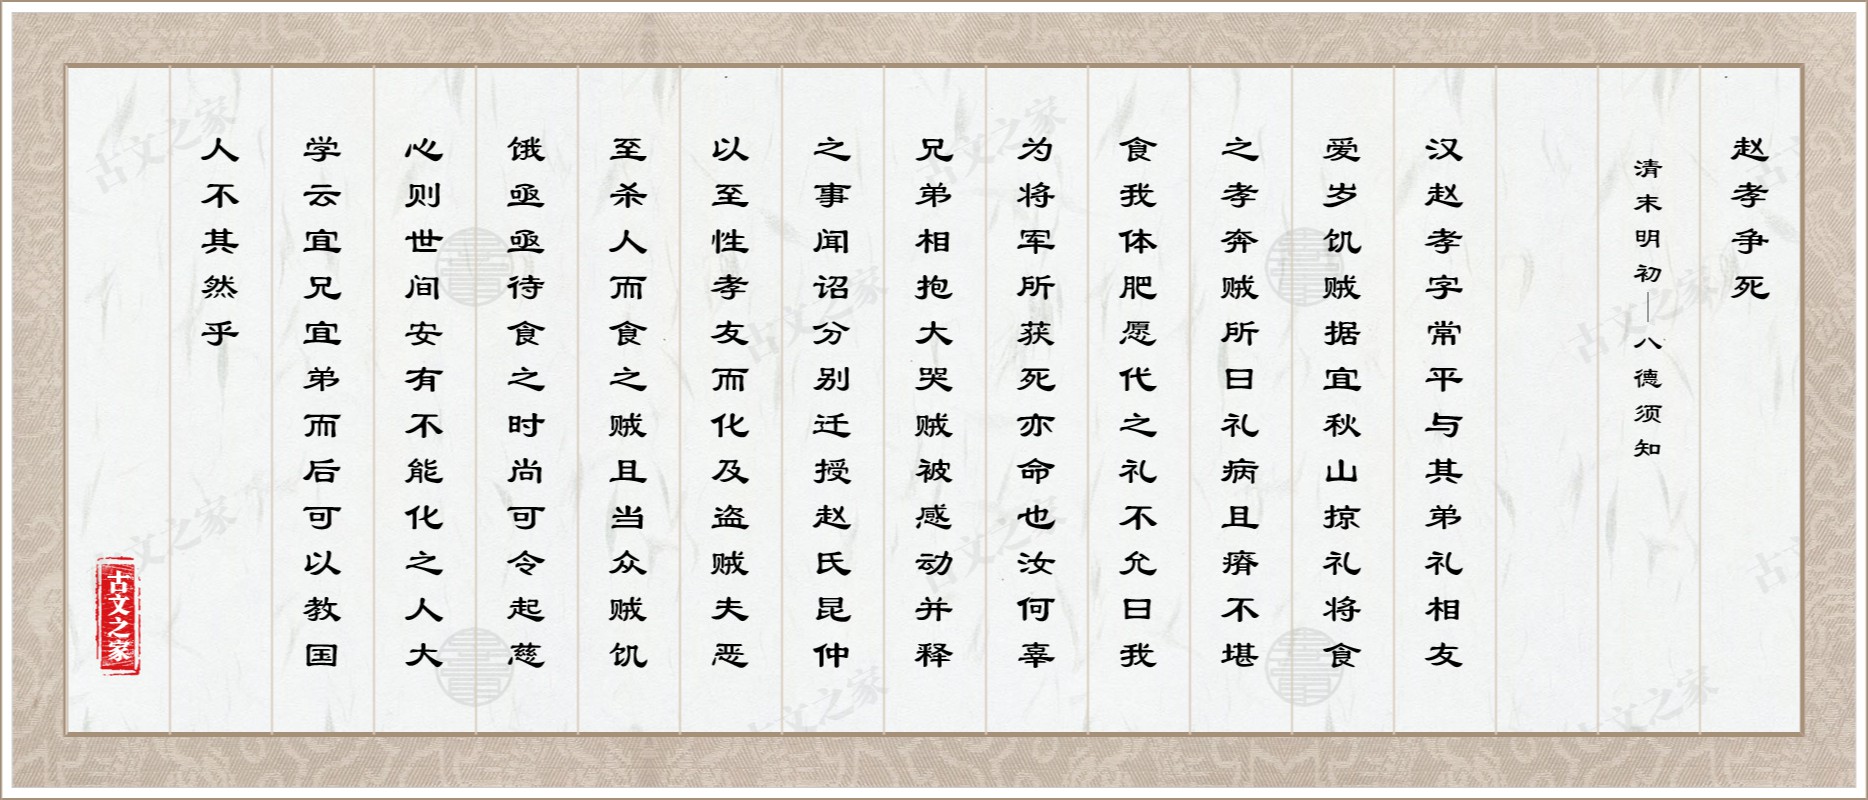 赵孝争死
清末明初—八德须知
汉赵孝字常平与其弟礼相友
爱岁饥贼据宜秋山掠礼将食
之孝奔贼所曰礼病且瘠不堪
食我体肥愿代之礼不允曰我
为将军所获死亦命也汝何辜
兄弟相抱大哭贼被感动并释
之事闻诏分别迁授赵氏昆仲
以至性孝友而化及盗贼夫恶
至杀人而食之贼且当众贼饥
饿亟亟待食之时尚可令起慈
心则世间安有不能化之人大
学云宜兄宜弟而后可以教国
人不其然乎
古文之家